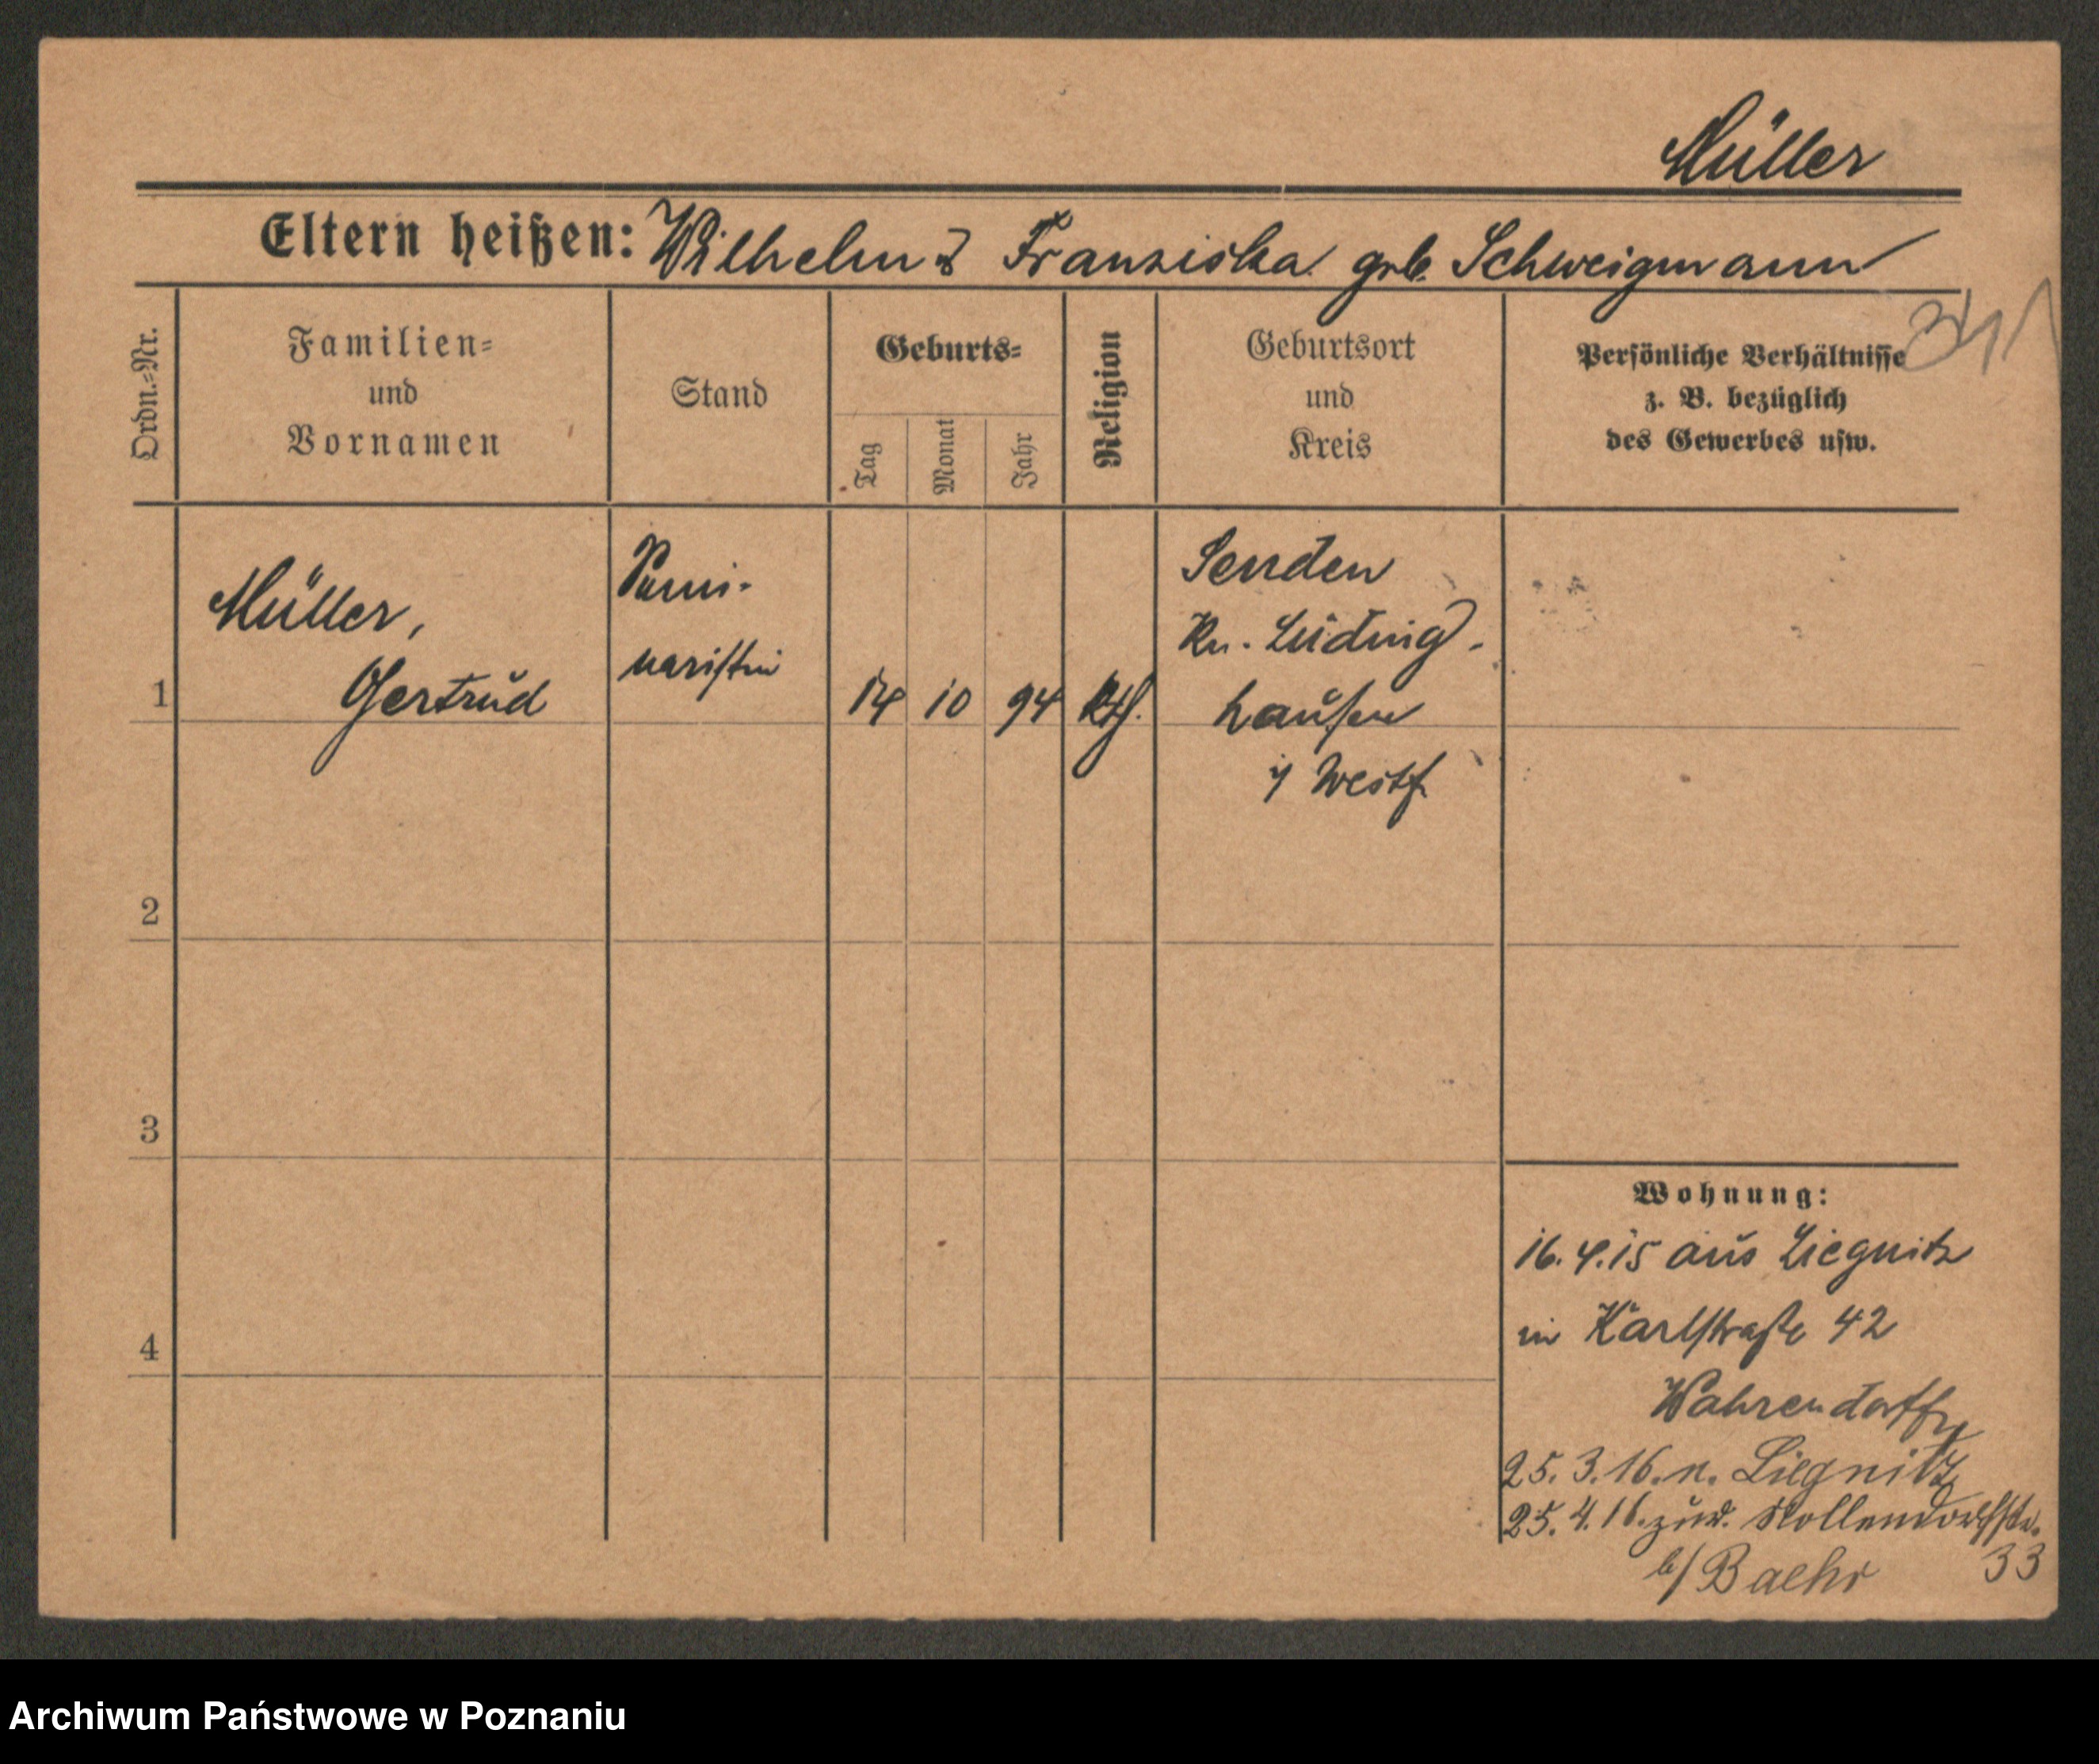 Müller
Eltern heißen: Wilhelm & Franziska geb. Schweigmann
Ordn.=Nr.
Familien=
und
Vornamen
Stand
Geburts=
Tag
Monat
Jahr
Religion
Geburtsort
und
Kreis
Persönliche Verhältnisse
z. B. bezüglich
des Gewerbes usw.
1
Müller,
Gertrud
Semi-
naristin
14 10 94 kth.
Senden
Kr. Lüding-
hausen
i/ Westf.
2
3
4
Wohnung:
16.4.15 aus Liegnitz
in Karlstraße 42
Wahrendorff
25.3.16. n. Liegnitz
25.4.16. zur. Nollendorfstr.
33
b/ Baehr
Archiwum Państwowe w Poznaniu